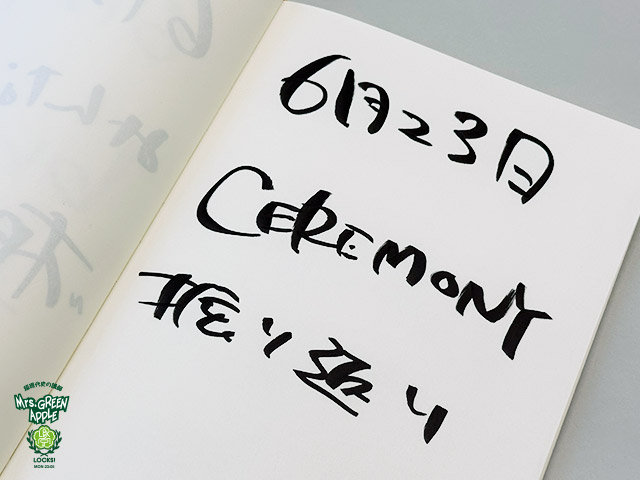 6月23日
CEREMONY
振り返り
Mrs. GREEN
APPLE
LOCKS!
MON 22:00